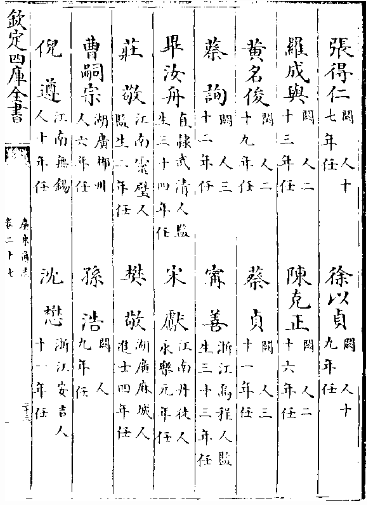 張得仁 閩人十七年任 徐以貞 閩人十九年任
羅成與 閩人二十三年任 陳克正 閩人二十六年任
黄名俊 閩人二十九年任 蔡貞 閩人三十一年任
蔡詢 閩人三十二年任 甯善 浙江烏程人監生三十三年任
畢汝舟 直隸武清人監生三十四年任 宋獻 江南丹徒人永樂元年任
莊敬 江南靈璧人監生二年任 樊敬 湖廣麻城人進士四年任
曹嗣宗 湖廣郴州人六年任 孫浩 閩人九年任
倪遵 江南無錫人十年任 沈懋 浙江安吉人十一年任
欽定四庫全書 廣東通志 卷二十七